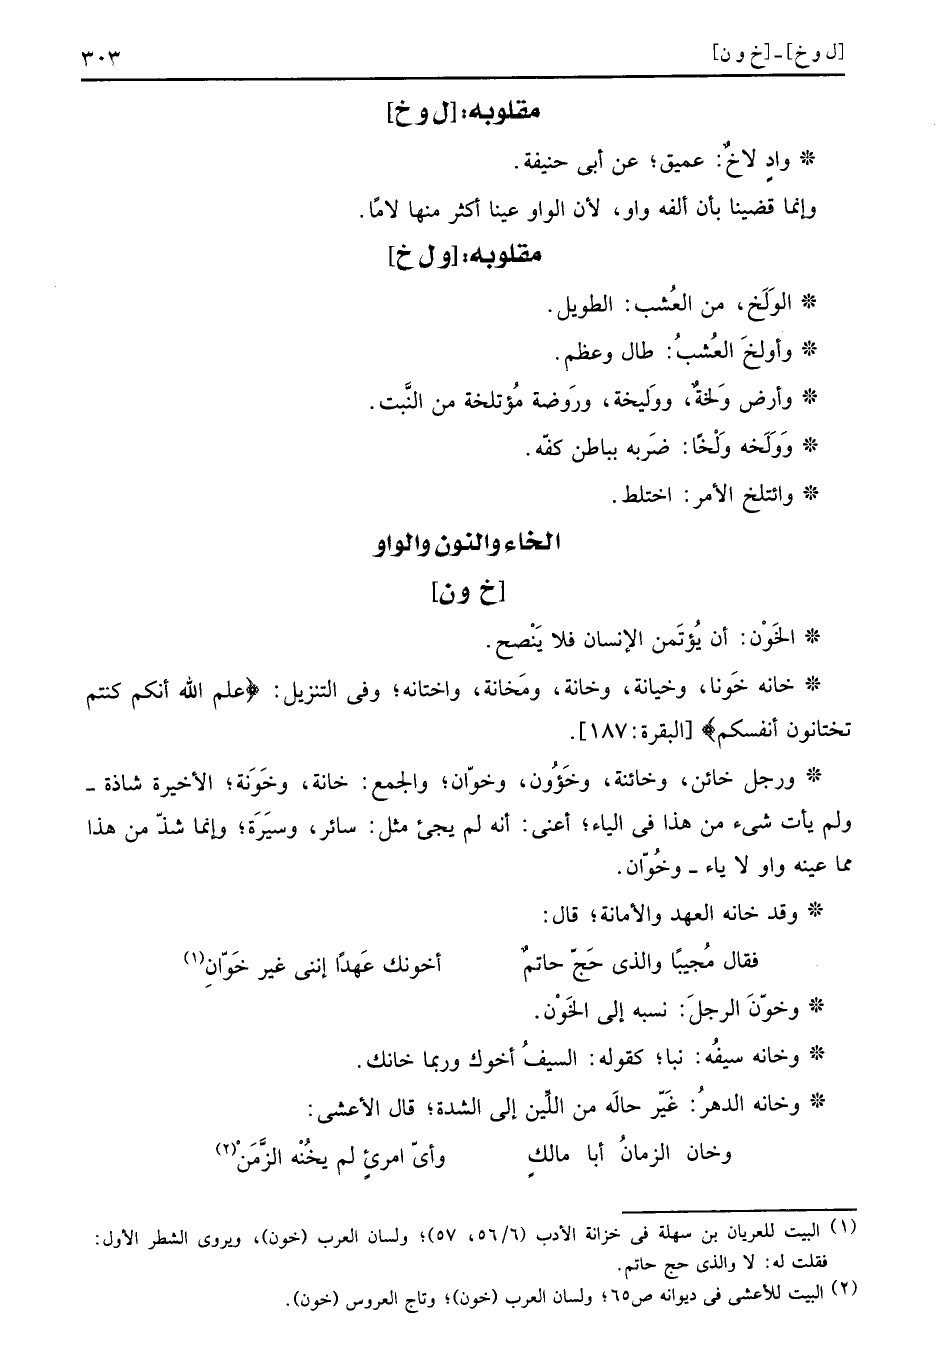 [ل و خ] ـ [خ و ن] ٣٠٣
مقلوبه: [ل و خ]
* وادٍ لاخٌ: عميق؛ عن أبى حنيفة.
وإنما قضينا بأن ألفه واو، لأن الواو عينا أكثر منها لامًا.
مقلوبه: [و ل خ]
* الوَلَخ، من العُشب: الطويل.
* وأولخَ العُشبُ: طال وعظم.
* وأرض وَلخةٌ، ووَليخة، ورَوضة مُؤتلخة من النَّبت.
* وَوَلَخه وَلْخًا: ضرَبه بباطن كفّه.
* وائتلخ الأمر: اختلط.
الخاء والنون والواو
[خ ون]
* الخَوْن: أن يُؤتَمن الإنسان فلا يَنْصح.
* خانه خَونا، وخيانة، وخانة، ومَخانة، واختانه؛ وفى التنزيل: ﴿علم الله أنكم كنتم
تختانون أنفسكم﴾ [البقرة: ١٨٧].
* ورجل خائن، وخائنة، وخَؤُون، وخوّان؛ والجمع: خانة، وخَوَنة؛ الأخيرة شاذة ـ
ولم يأت شىء من هذا فى الياء؛ أعنى: أنه لم يجئ مثل: سائر، وسيَرَة؛ وإنما شذّ من هذا
مما عينه واو لا ياء ـ وخُوّان.
* وقد خانه العهد والأمانة؛ قال:
فقال مُجيبًا والذى حَجّ حاتمٌ أخونك عَهدًا إننى غير خَوّانِ(١)
* وخوّنَ الرجلَ: نسبه إلى الخَوْن.
* وخانه سيفُه: نبا؛ كقوله: السيفُ أخوك وربما خانك.
* وخانه الدهرُ: غَيّر حالَه من اللِّين إلى الشدة؛ قال الأعشى:
وخان الزمانُ أبا مالكٍ وأىّ امرئٍ لم يخُنْه الزَّمَنْ(٢)
(١) البيت للعريان بن سهلة فى خزانة الأدب (٥٦/٦، ٥٧)؛ ولسان العرب (خون)، ويروى الشطر الأول:
فقلت له: لا والذى حج حاتم.
(٢) البيت للأعشى فى ديوانه ص٦٥؛ ولسان العرب (خون)؛ وتاج العروس (خون).